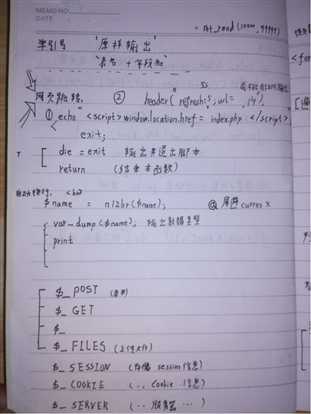 MEMO NO.
DATE
mt_rand(1000, 99999)
单引号 '原样输出'
网页跳转 ② header("refresh:5; url=
① echo "<script>window.location.href = index.php </script>"
exit;
die = exit 输出并退出脚本
return (结束本函数)
$name = nl2br($name);
var_dump($name); 输出数据类型
print
$_POST
$_GET
$_
$_FILES (上传文件)
$_SESSION (存储 session 信息)
$_COOKIE (.. Cookie 信息)
$_SERVER (.. 服务器 ...)